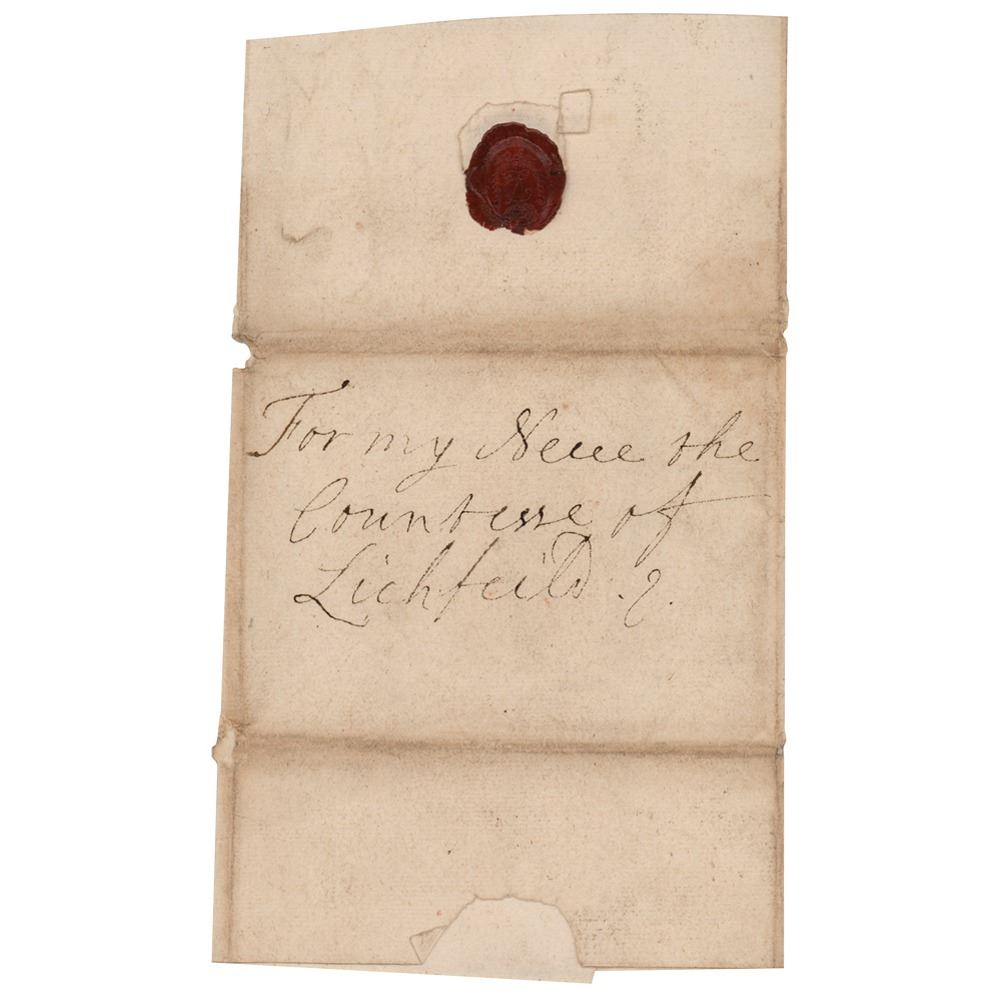 For my Neece the
Countesse of
Lichfeild .